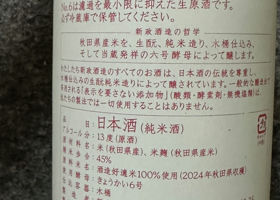 No.6は濾過を最小限に抑えた生原酒です。
必ず冷蔵庫で保管してください。
新政酒造の哲学
秋田県産米を、生酛、純米造り、木桶仕込み、
そして当蔵発祥の六号酵母によって醸します。
わたしたち新政酒造のすべてのお酒は、日本酒の伝統を尊重し、
木桶仕込の生酛純米造りによって醸されています。一般的な醸造法で
使用される「表示を要さない添加物」(酸類・酵素剤・無機塩類)は
私たちの製法では一切使用することはありません。
日本酒(純米酒)
アルコール分:13度(原酒)
原材料名:米(秋田県産)、米麹(秋田県産米)
45%
酒造好適米100%使用(2024年秋田県収穫)
きょうかい6号
木桶